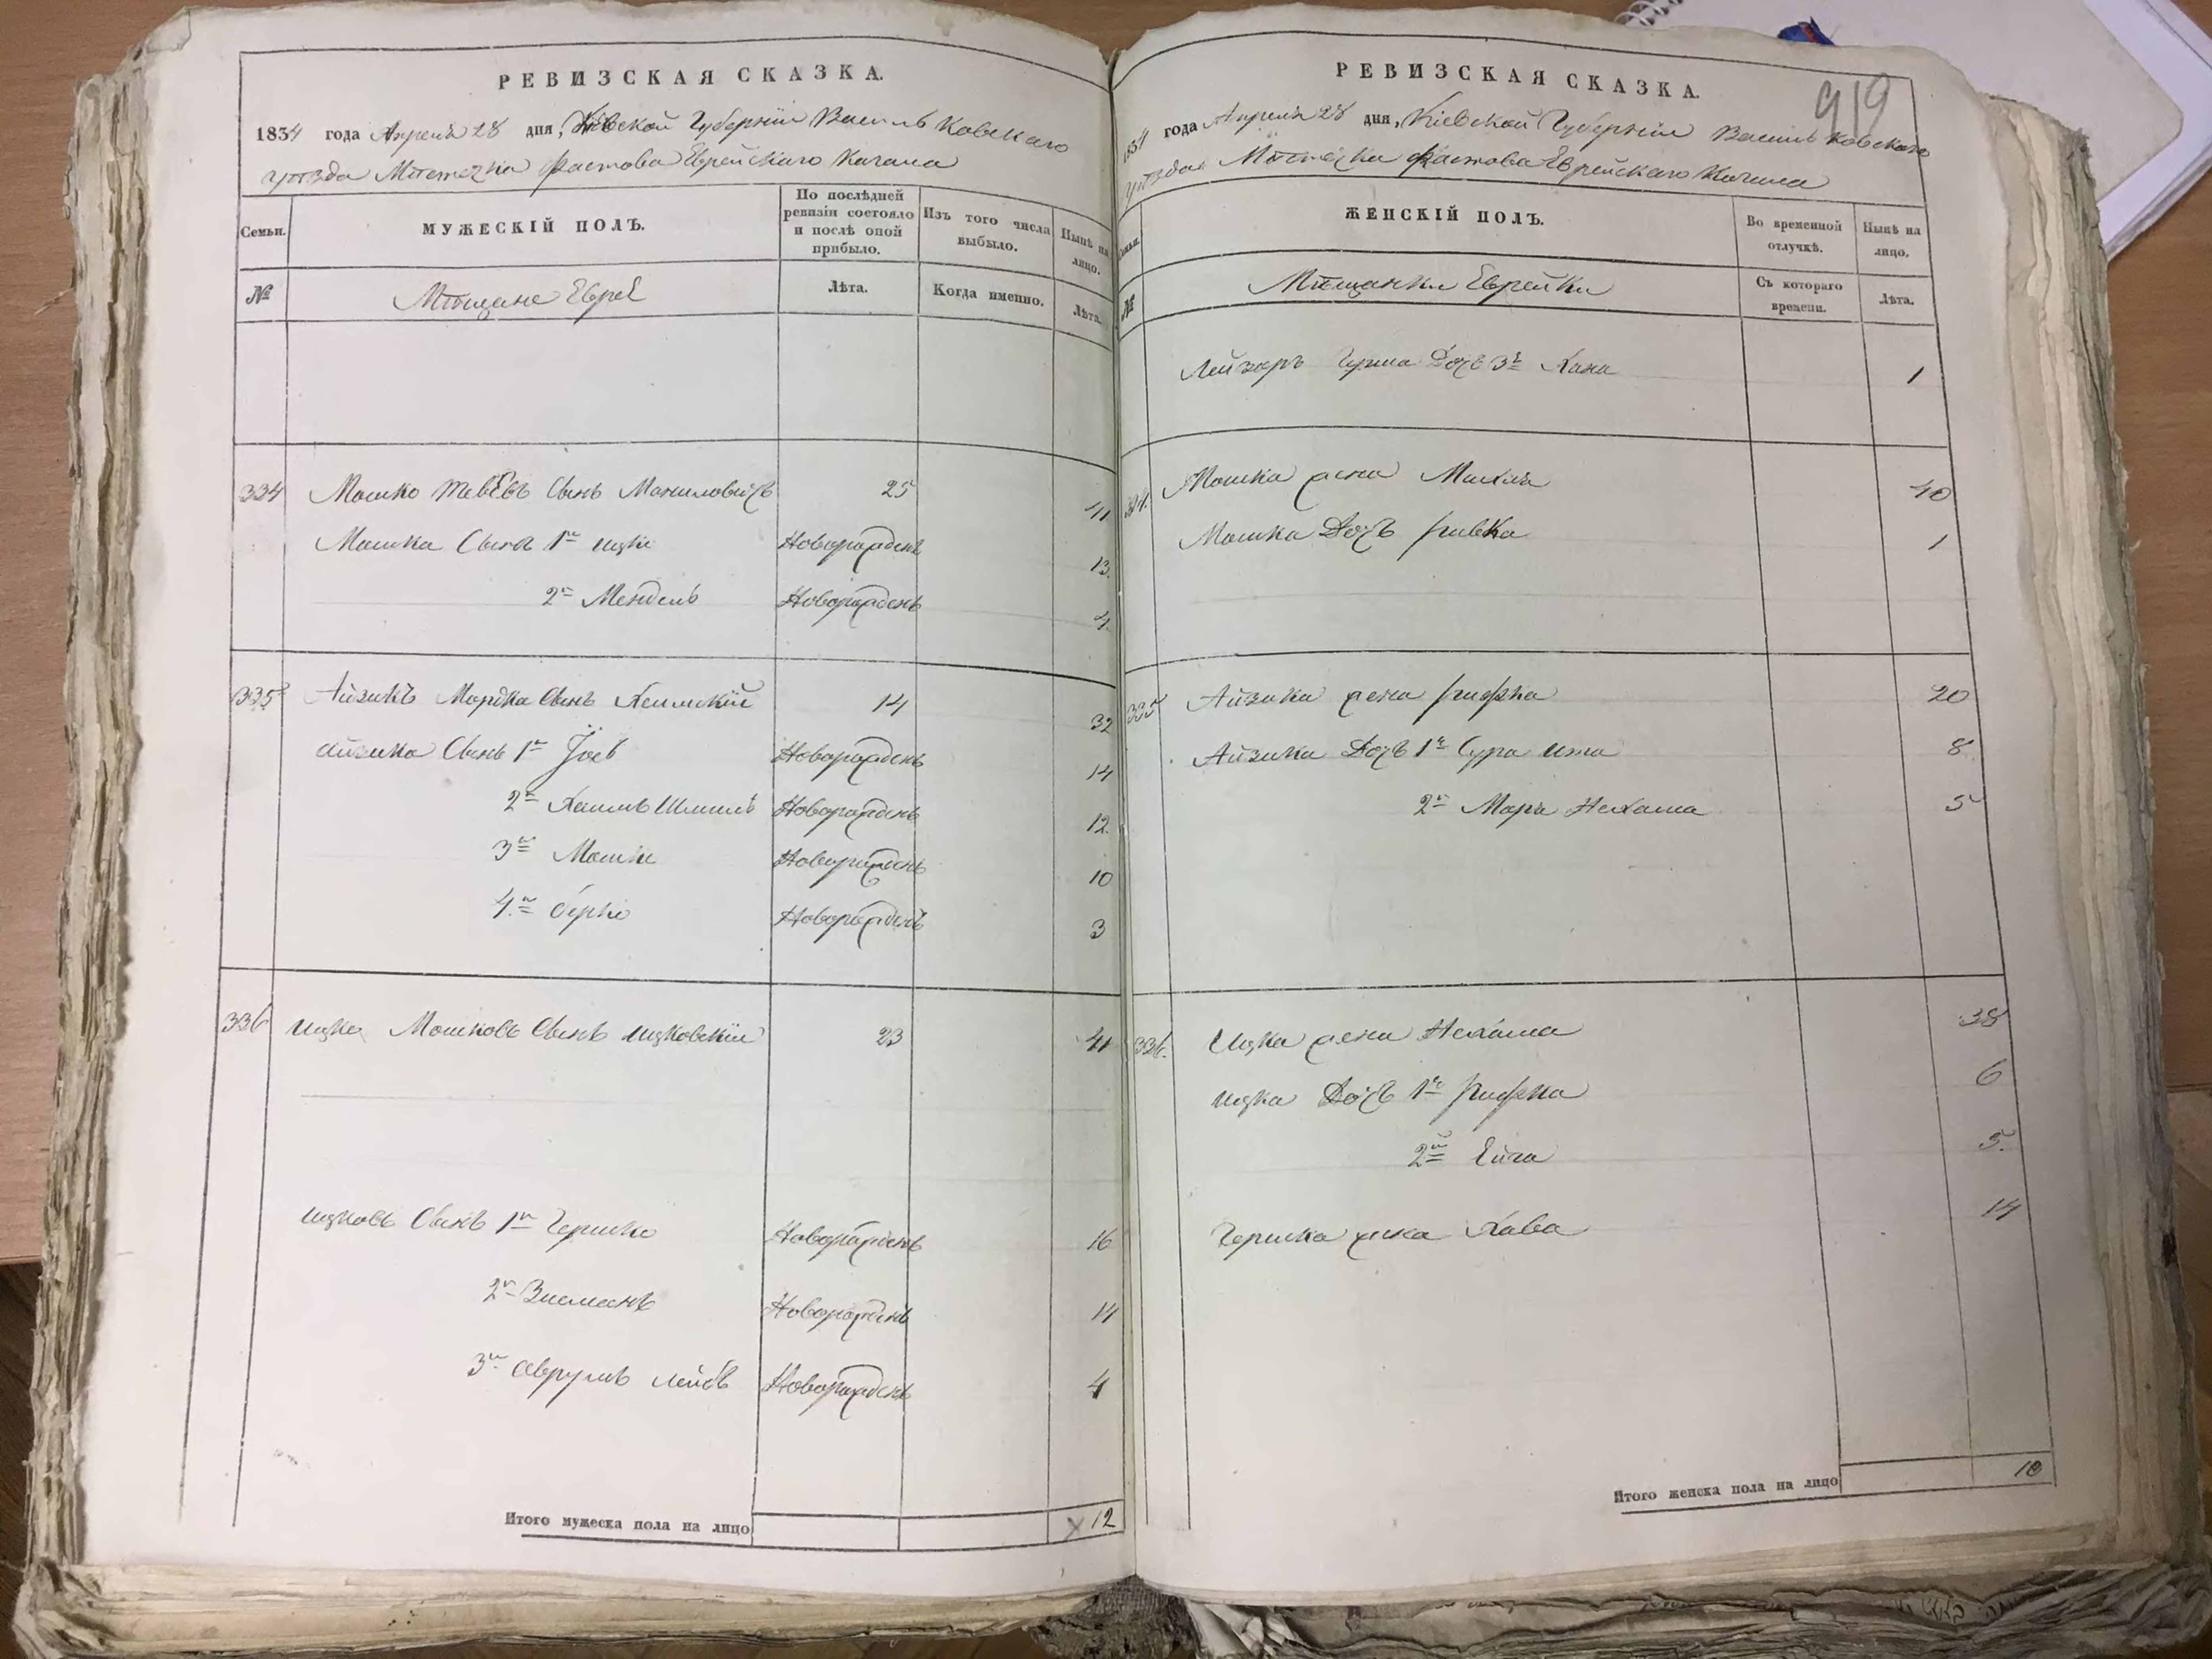 РЕВИЗСКАЯ СКАЗКА.
1834 года Апреля 28 дня, Кіевской Губерніи Васильковскаго
уѣзда Мѣстечка Фастова Еврейскаго Кагала
Семьи.
МУЖЕСКІЙ ПОЛЪ.
По послѣдней ревизіи состояло и послѣ оной прибыло.
Изъ того числа выбыло.
Нынѣ на лицо.
№
Мѣщане Евреи
Лѣта.
Когда именно.
Лѣта.
334 Мошко Тевевъ Сынъ Маниловичъ 25 41
Мошка Сынъ 1й Ицко Новорожденъ 13
2й Мендель Новорожденъ 4
335 Айзикъ Мордка Сынъ Хаимскій 14 32
Айзика Сынъ 1й Іосъ Новорожденъ 14
2й Хаимъ Шмиль Новорожденъ 12
3й Мошко Новорожденъ 10
4й Берко Новорожденъ 3
336 Ицко Мошковъ Сынъ Ицковскій 23 41
Ицковъ Сынъ 1й Гершко Новорожденъ 16
2й Зисманъ Новорожденъ 14
3й Аврумъ Лейбъ Новорожденъ 4
Итого мужеска пола на лицо 12
919
РЕВИЗСКАЯ СКАЗКА.
1834 года Апреля 28 дня, Кіевской Губерніи Васильковскаго
уѣзда Мѣстечка Фастова Еврейскаго Кагала
Семьи.
ЖЕНСКІЙ ПОЛЪ.
Во временной отлучкѣ.
Нынѣ на лицо.
№
Мѣщанки Еврейки
Съ котораго времени.
Лѣта.
Лейзоръ Дочь 3я Хана 1
334. Мошка жена 40
Мошка Дочь Ривка 1
335 Айзика жена Рифка 20
Айзика Дочь 1я Сура Ита 8
2я Нехама 5
336. Ицка жена Нехама 38
Ицка Дочь 1я Рифка 6
2я 5.
Гершка жена Хава 14
Итого женска пола на лицо 10